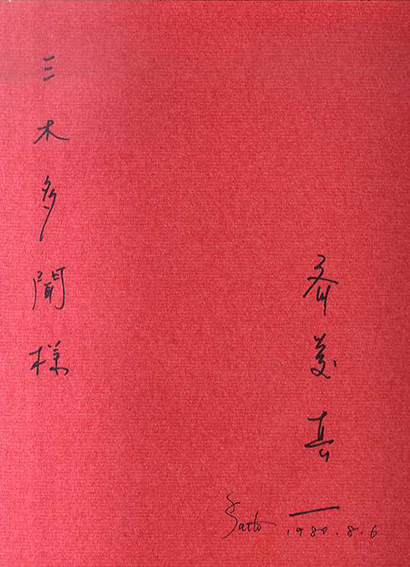 三木多聞様
斉藤真一
Saito 1980.8.6